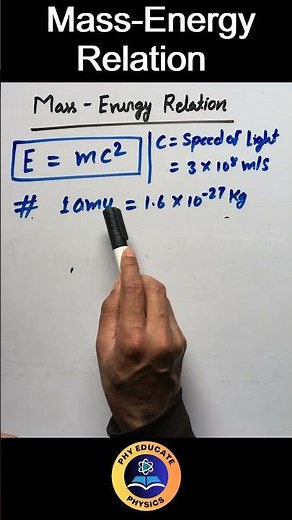 Mass-Energy
Relation
Mass - Energy Relation
E = mc²
C = Speed of Light
= 3 × 10⁸ m/s
# 1 amu = 1.6 × 10⁻²⁷ Kg
PHY EDUCATE
PHYSICS